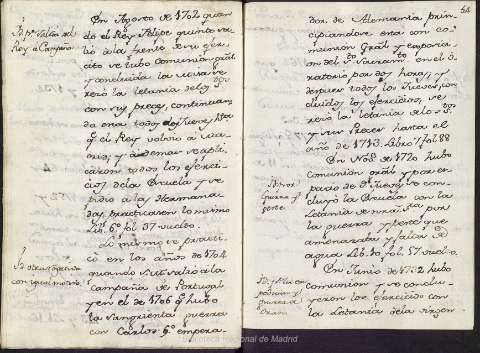 En Agosto de 1702 quan-
do el Rey Felipe quinto sa-
lió a la frente de su exer-
cito se tubo Comunion gral
y concluida la misa se
rezó la Letania de los Stos
con sus preces, continuan-
do esto todos los Jueves hta
q. el Rey volvió a Ma-
drid, y ademas se apli-
caron todos los exerci-
cios de la Escuela y se
pidió a las Hermanda-
das practicasen lo mismo
Lib. 6º fol. 37 vuelto.
Lo mismo se practi-
có en los años de 1704
quando S.M. salió a la
Campaña de Portugal
y en el de 1706 q. hubo
la sangrienta guerra
con Carlos 6º empera-
Rey a Campaña
54
dor de Alemania, prin-
cipiandose esta con co-
munion Gral y exposi-
cion del Smo Sacramto en el O-
ratorio por dos horas, y
despues todos los Jueves, con-
cluidos los exercicios, se
rezó la Letania de los Stos
y sus Preces hasta el
año de 1713. Libro 7 fol. 88
En Nobe de 1720 hubo
comunion gral y por es-
pacio de Jueves se con-
cluyó la Escuela con la
Letania de nra Sra por
la guerra y peste que
amenazaba y falta de
agua Lib. 10 fol. 57 vuelto.
En Junio de 1732 hubo
comunion y se conclu-
yeron los exercicios con
la Letania de la Virgen
Guerra y
peste
Oran
Biblioteca Regional de Madrid